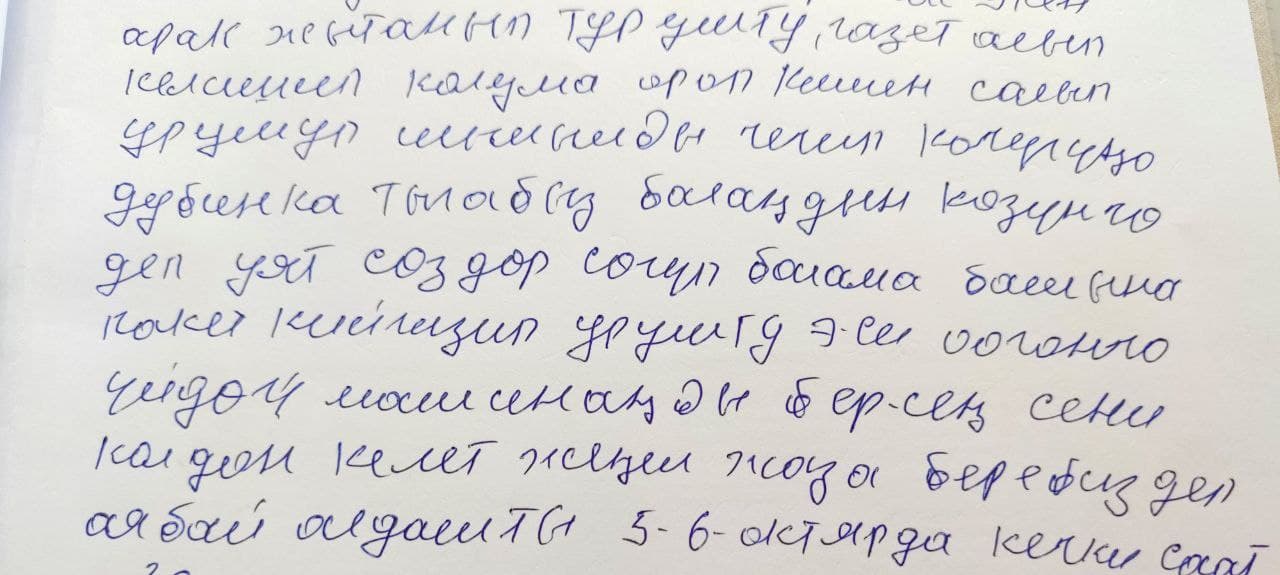 арак жытанып турушту, газет алып
келишип колума ороп кишен салып
урушуп шымымды чечип көчүгүңө
дубинка тыгабыз балаңдын көзүнчө
деп уят сөздөр сөгүп болама башыма
пакет кийгизип урушту эси оогончо
үйдөн машинаңды бер-сең сени
колдон келет жеңил жаза беребиз деп
аябай алдашты 5-6-октярда кечки саат